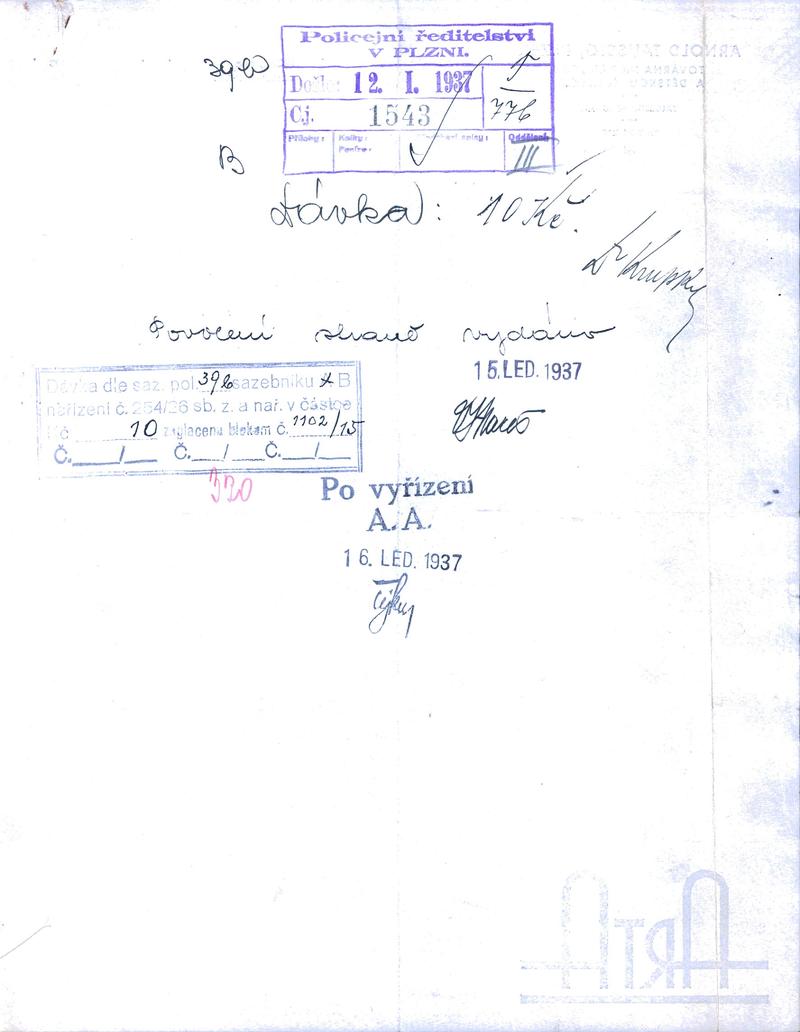 Policejní ředitelství
V PLZNI.
Došlo: 12. I. 1937
Čj. 1543
776
Přílohy: Kolky: Oddělení:
III
B
Dávka: 10 Kč.
Dr Krupský
Povolení straně vydáno
15. LED. 1937
Dávka dle saz. pol. 39b sazebníku A B
nařízení č. 254/26 sb. z. a nař. v částce
Kč 10 zaplacena blokem č. 1102/15
Č. / Č. / Č. /
320
Po vyřízení
A.A.
16. LED. 1937
ARNOLD
ARTA